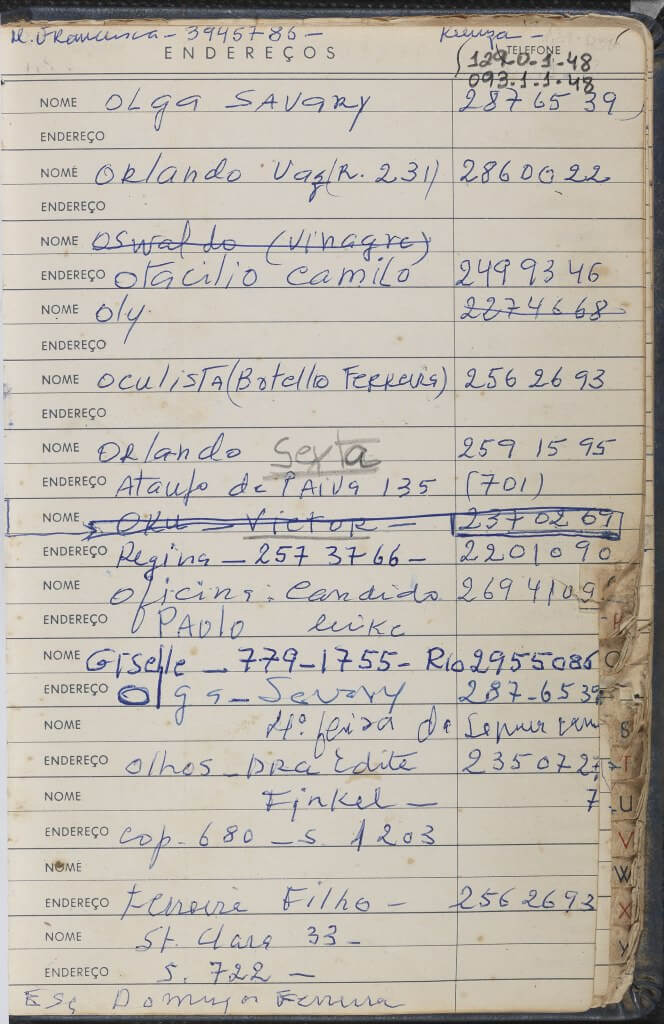 M. Francisca - 3945786 -
ENDEREÇOS
TELEFONE
129-0-1-48
093.1.1-48
NOME OLGA SAVARY 2876539
ENDEREÇO
NOME ORLANDO Vaz (R. 231) 2860022
ENDEREÇO
NOME OSWALDO (VINAGRE)
ENDEREÇO OTACILIO CAMILO 2499346
NOME OLY 2274668
ENDEREÇO
NOME OCULISTA (Botello FERREIRA) 2562693
ENDEREÇO
NOME ORLANDO Sexta 259 15 95
ENDEREÇO ATAULFO de PAIVA 135 (701)
NOME VICTOR - 2370269
ENDEREÇO Regina - 257 3766 - 2201090
NOME Oficina. Candido 2694109
ENDEREÇO PAOLO
NOME Giselle - 779-1755 - Rio 2955086
ENDEREÇO Olga - Savary 287-6539
NOME 4ª feira de
ENDEREÇO Olhos - DRA Edite 2350727
NOME Finkel - 7
ENDEREÇO Cop. 680 - S. 1203
NOME
ENDEREÇO Ferreira Filho - 2562693
NOME St. Clara 33 -
ENDEREÇO S. 722 -
Esq Domingos Ferreira
S
T
U
V
W
X
Y